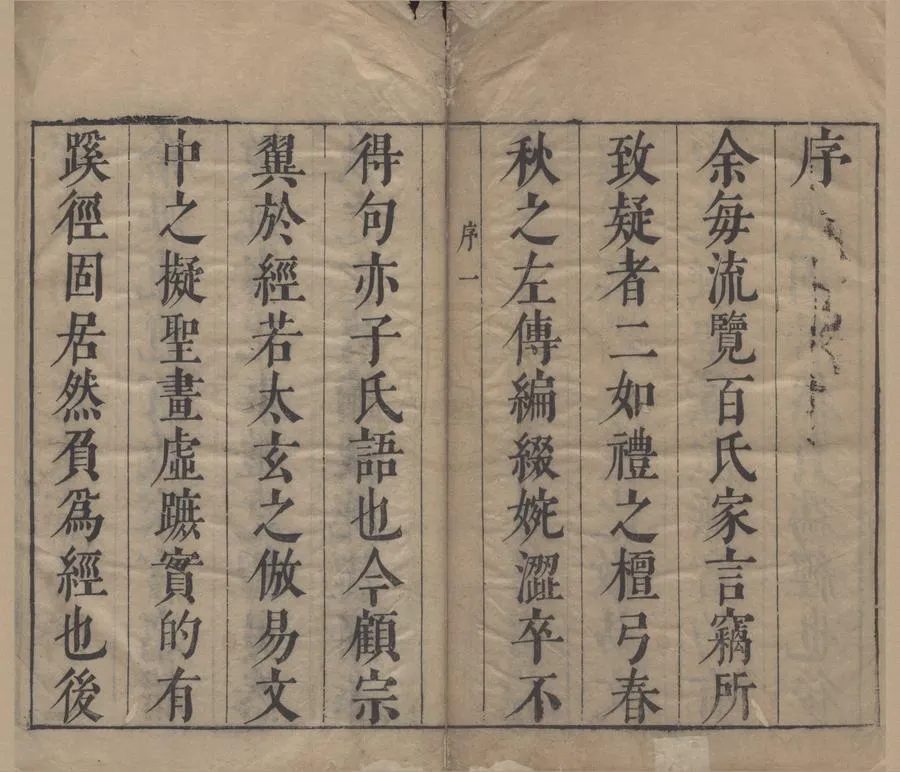 序
余每流覽百氏家言竊所
致疑者二如禮之檀弓春
秋之左傳編綴婉澀卒不
序 一
得句亦子氏語也今顧宗
翼於經若太玄之倣易文
中之擬聖畫虛蹠實的有
蹊徑固居然負爲經也後